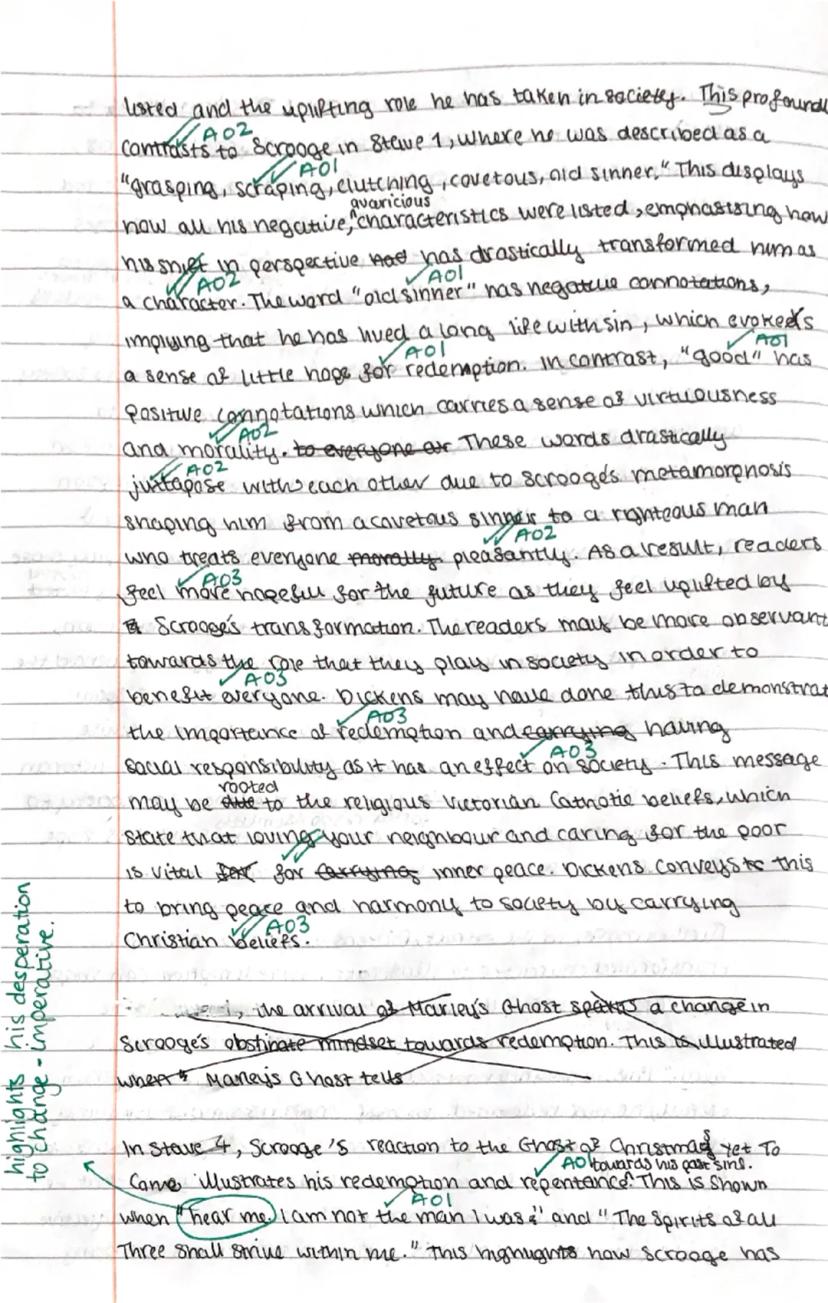 listed and the uplifting role he has taken in society. This profound
AO2
contrasts to Scrooge in Stave 1, where he was described as a
AO1
"grasping, scraping, clutching, covetous, old sinner." This displays
avaricious
how all his negative, characteristics were listed, emphasising how
his shift in perspective had has drastically transformed him as
AO2 AO1
a character. The word "old sinner" has negative connotations,
implying that he has lived a long life with sin, which evokes
AO1 AO1
a sense of little hope for redemption. In contrast, "good" has
positive connotations which carries a sense of virtuousness
AO2
and morality. to everyone or These words drastically
AO2
juxtapose with each other due to Scrooge's metamorphosis
shaping him from a covetous sinner to a righteous man
AO2
who treats everyone morally pleasantly. As a result, readers
AO3
feel more hopeful for the future as they feel uplifted by
Scrooge's transformation. The readers may be more observant
towards the role that they play in society in order to
AO3
benefit everyone. Dickens may have done this to demonstrat
AO3
the importance of redemption and carrying having
AO3
social responsibility as it has an effect on society. This message
rooted
may be due to the religious Victorian Catholic beliefs, which
state that loving your neighbour and caring for the poor
is vital for for carrying inner peace. Dickens conveys to this
to bring peace and harmony to society by carrying
AO3
Christian beliefs.
the arrival of Marley's Ghost sparks a change in
Scrooge's obstinate mindset towards redemption. This is illustrated
when Marley's Ghost tells
highlights his desperation
to change - imperative.
In Stave 4, Scrooge's reaction to the Ghost of Christmas Yet To
AO1 towards his past sins.
Come illustrates his redemption and repentance. This is shown
AO1
when "hear me I am not the man I was;" and "The Spirits of all
Three shall strive within me." This highlights how Scrooge has